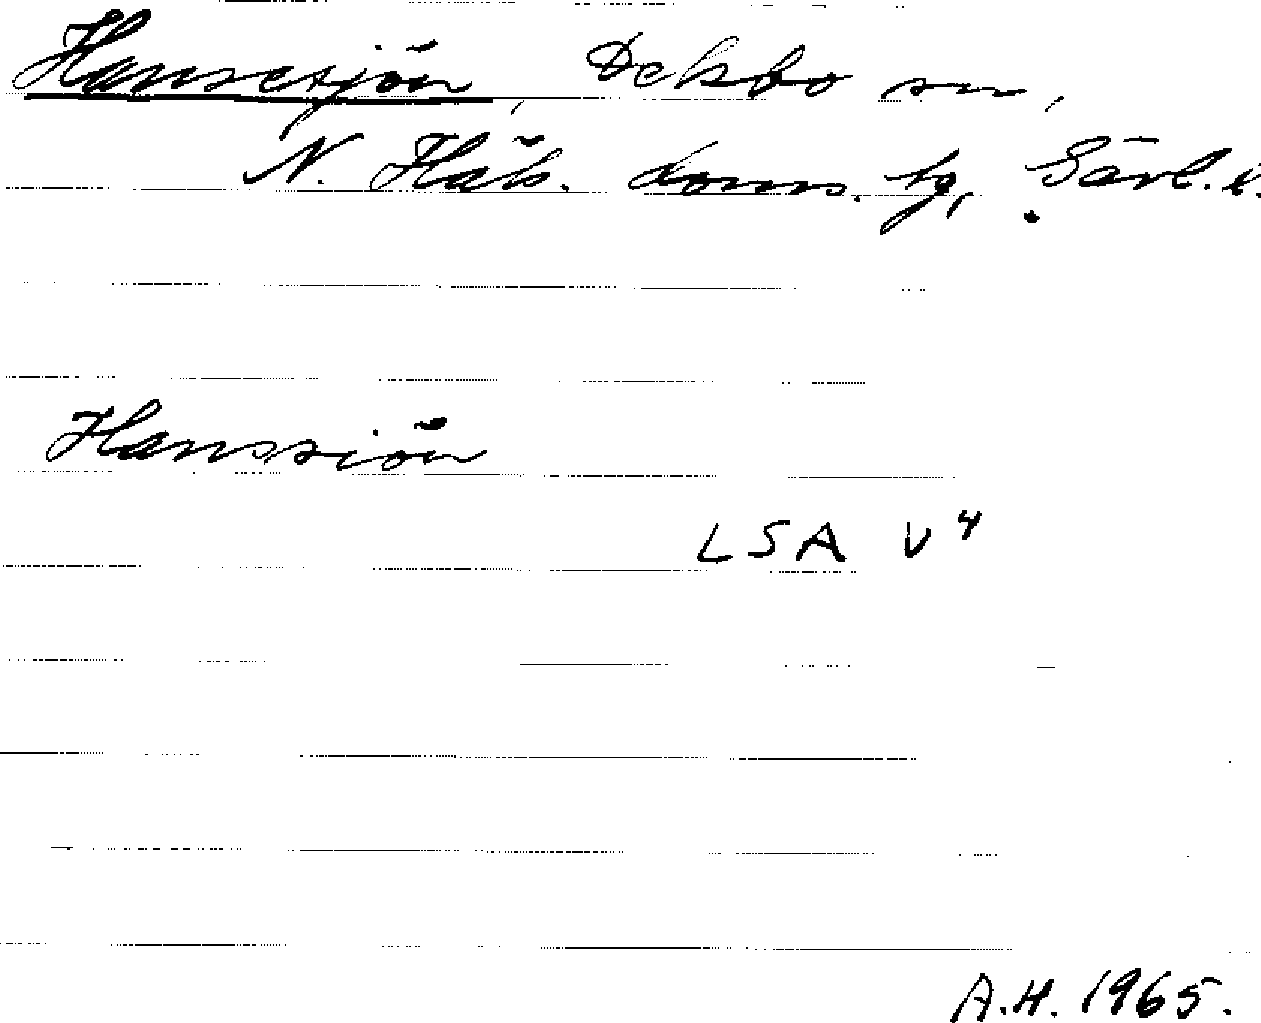 Hansesjön, Delsbo sn,
N. Häls. doms. tg, Gävl. l.
Hanssiön
LSA V4
A.H. 1965.